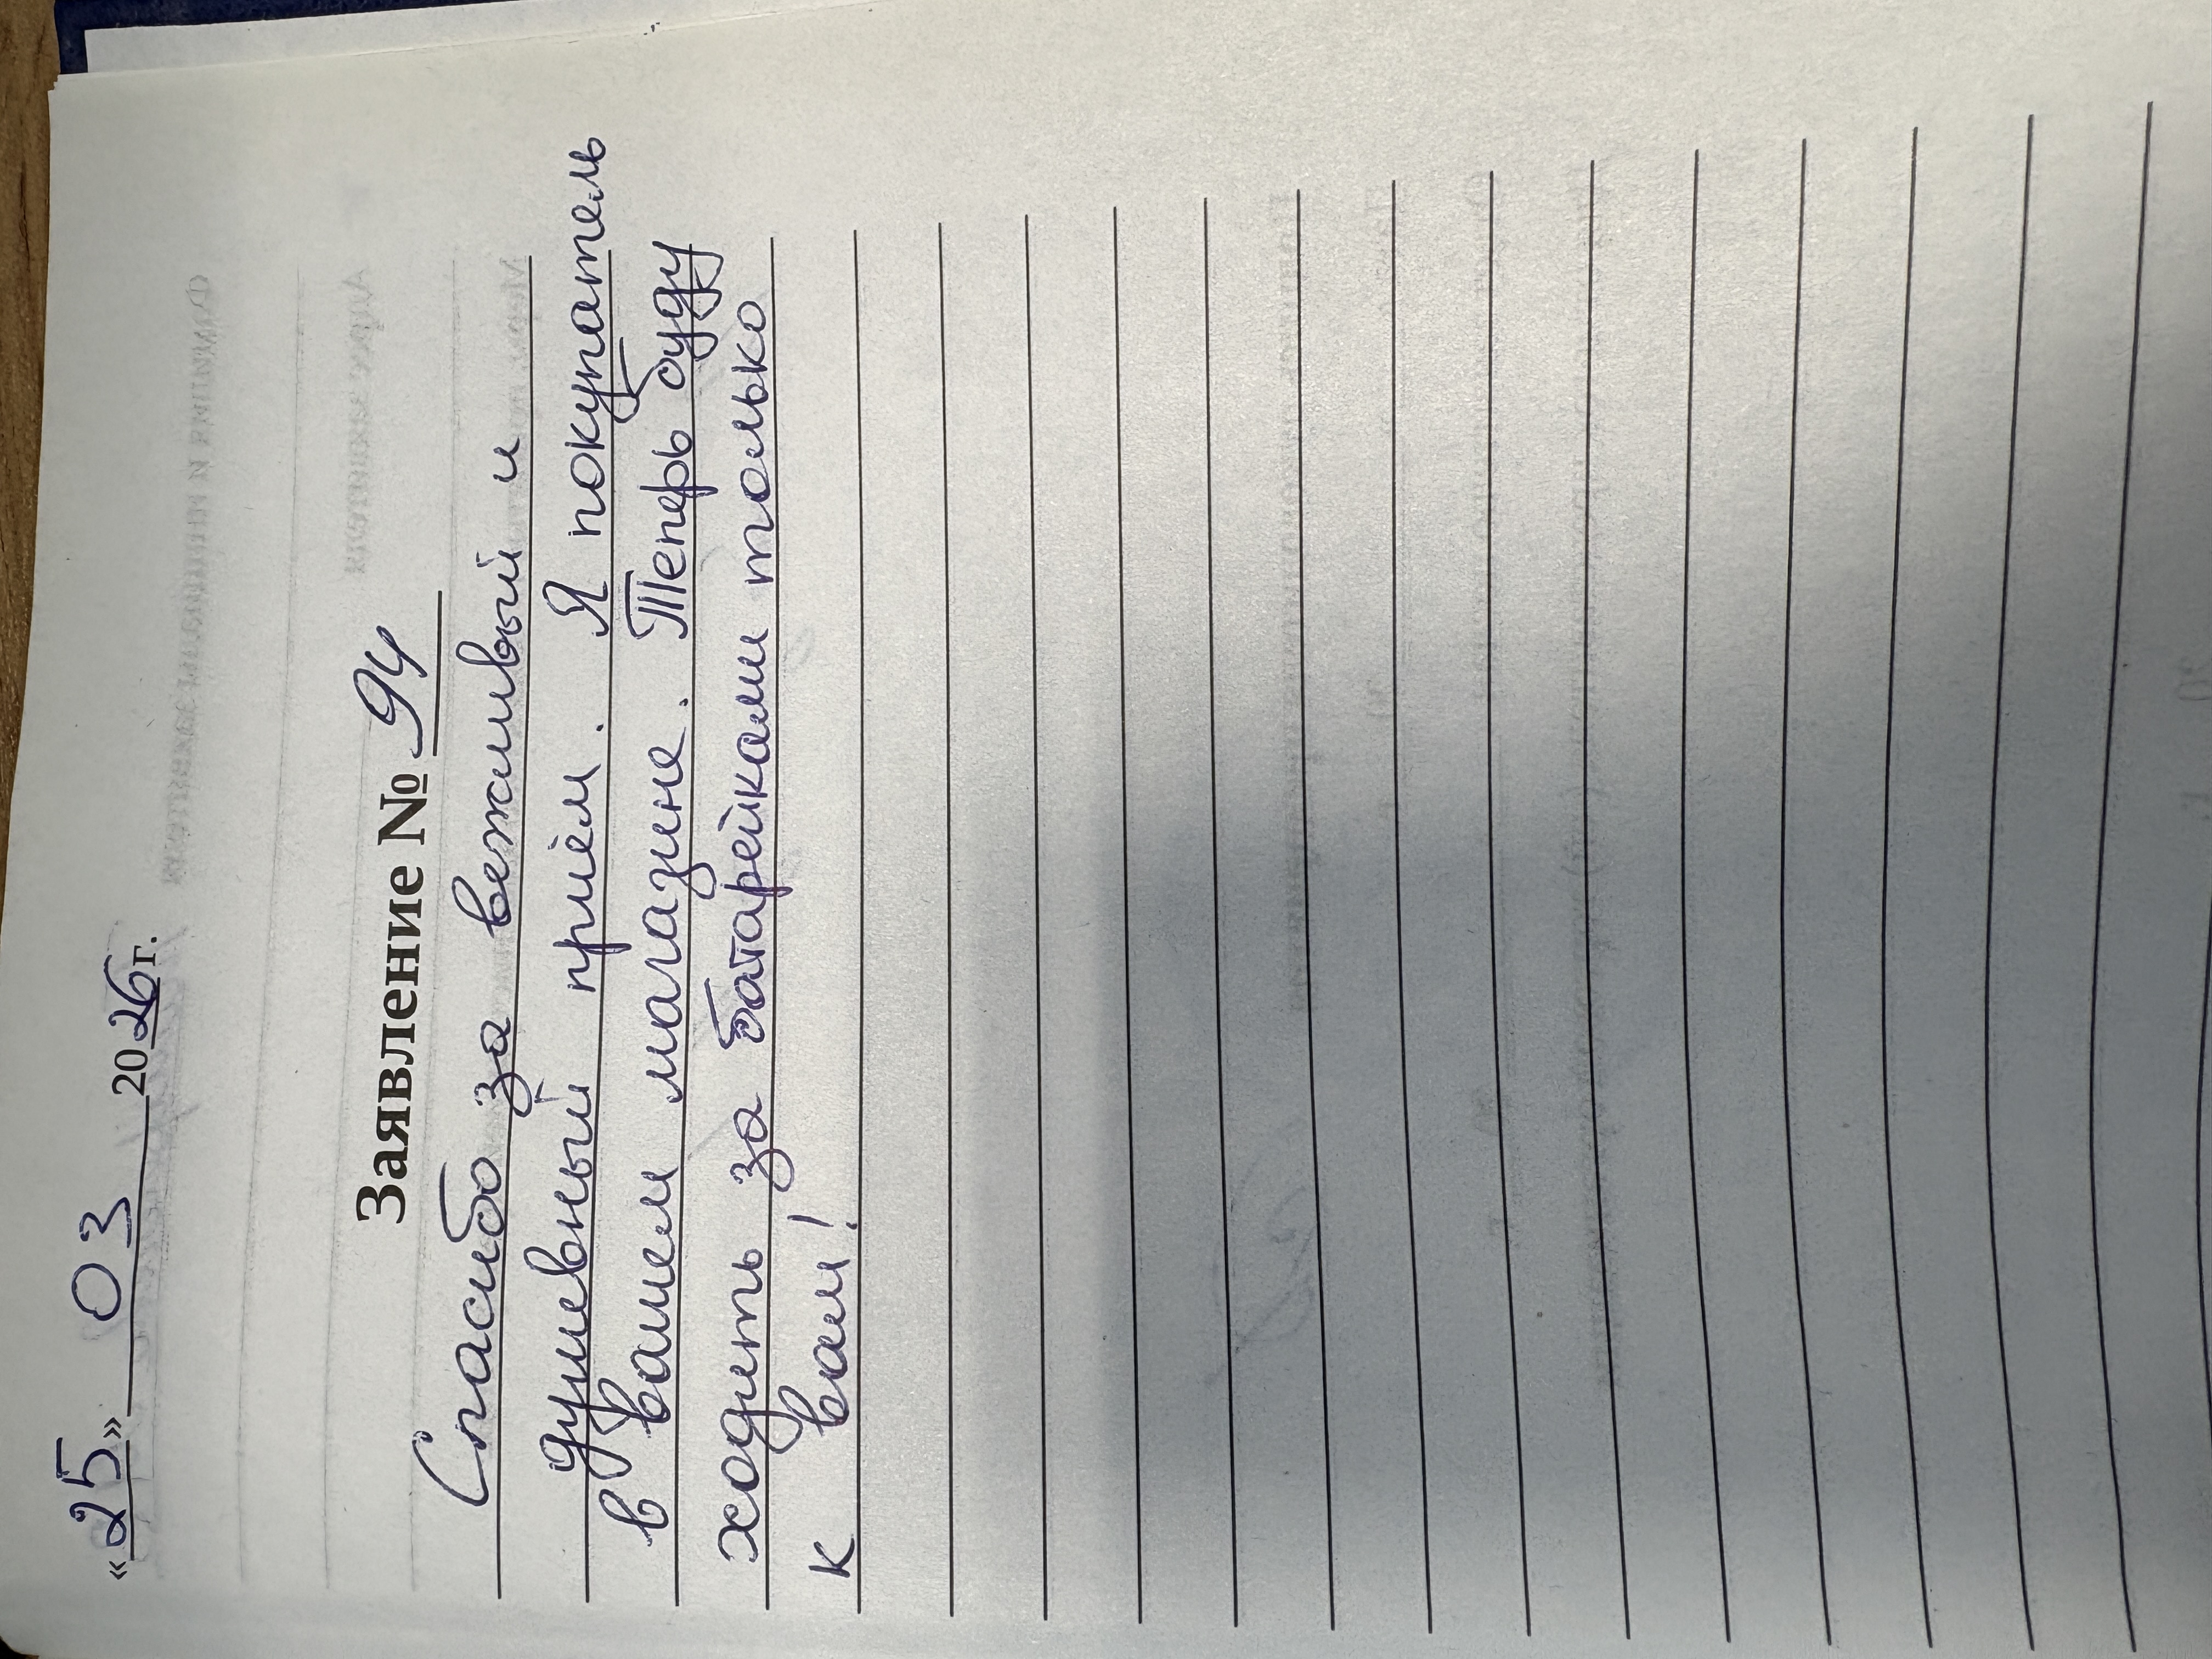 «25» 03 2026г.
Заявление № 94
Спасибо за вежливый и
душевный приём. Я покупатель
в вашем магазине. Теперь буду
ходить за батарейками только
к вам!